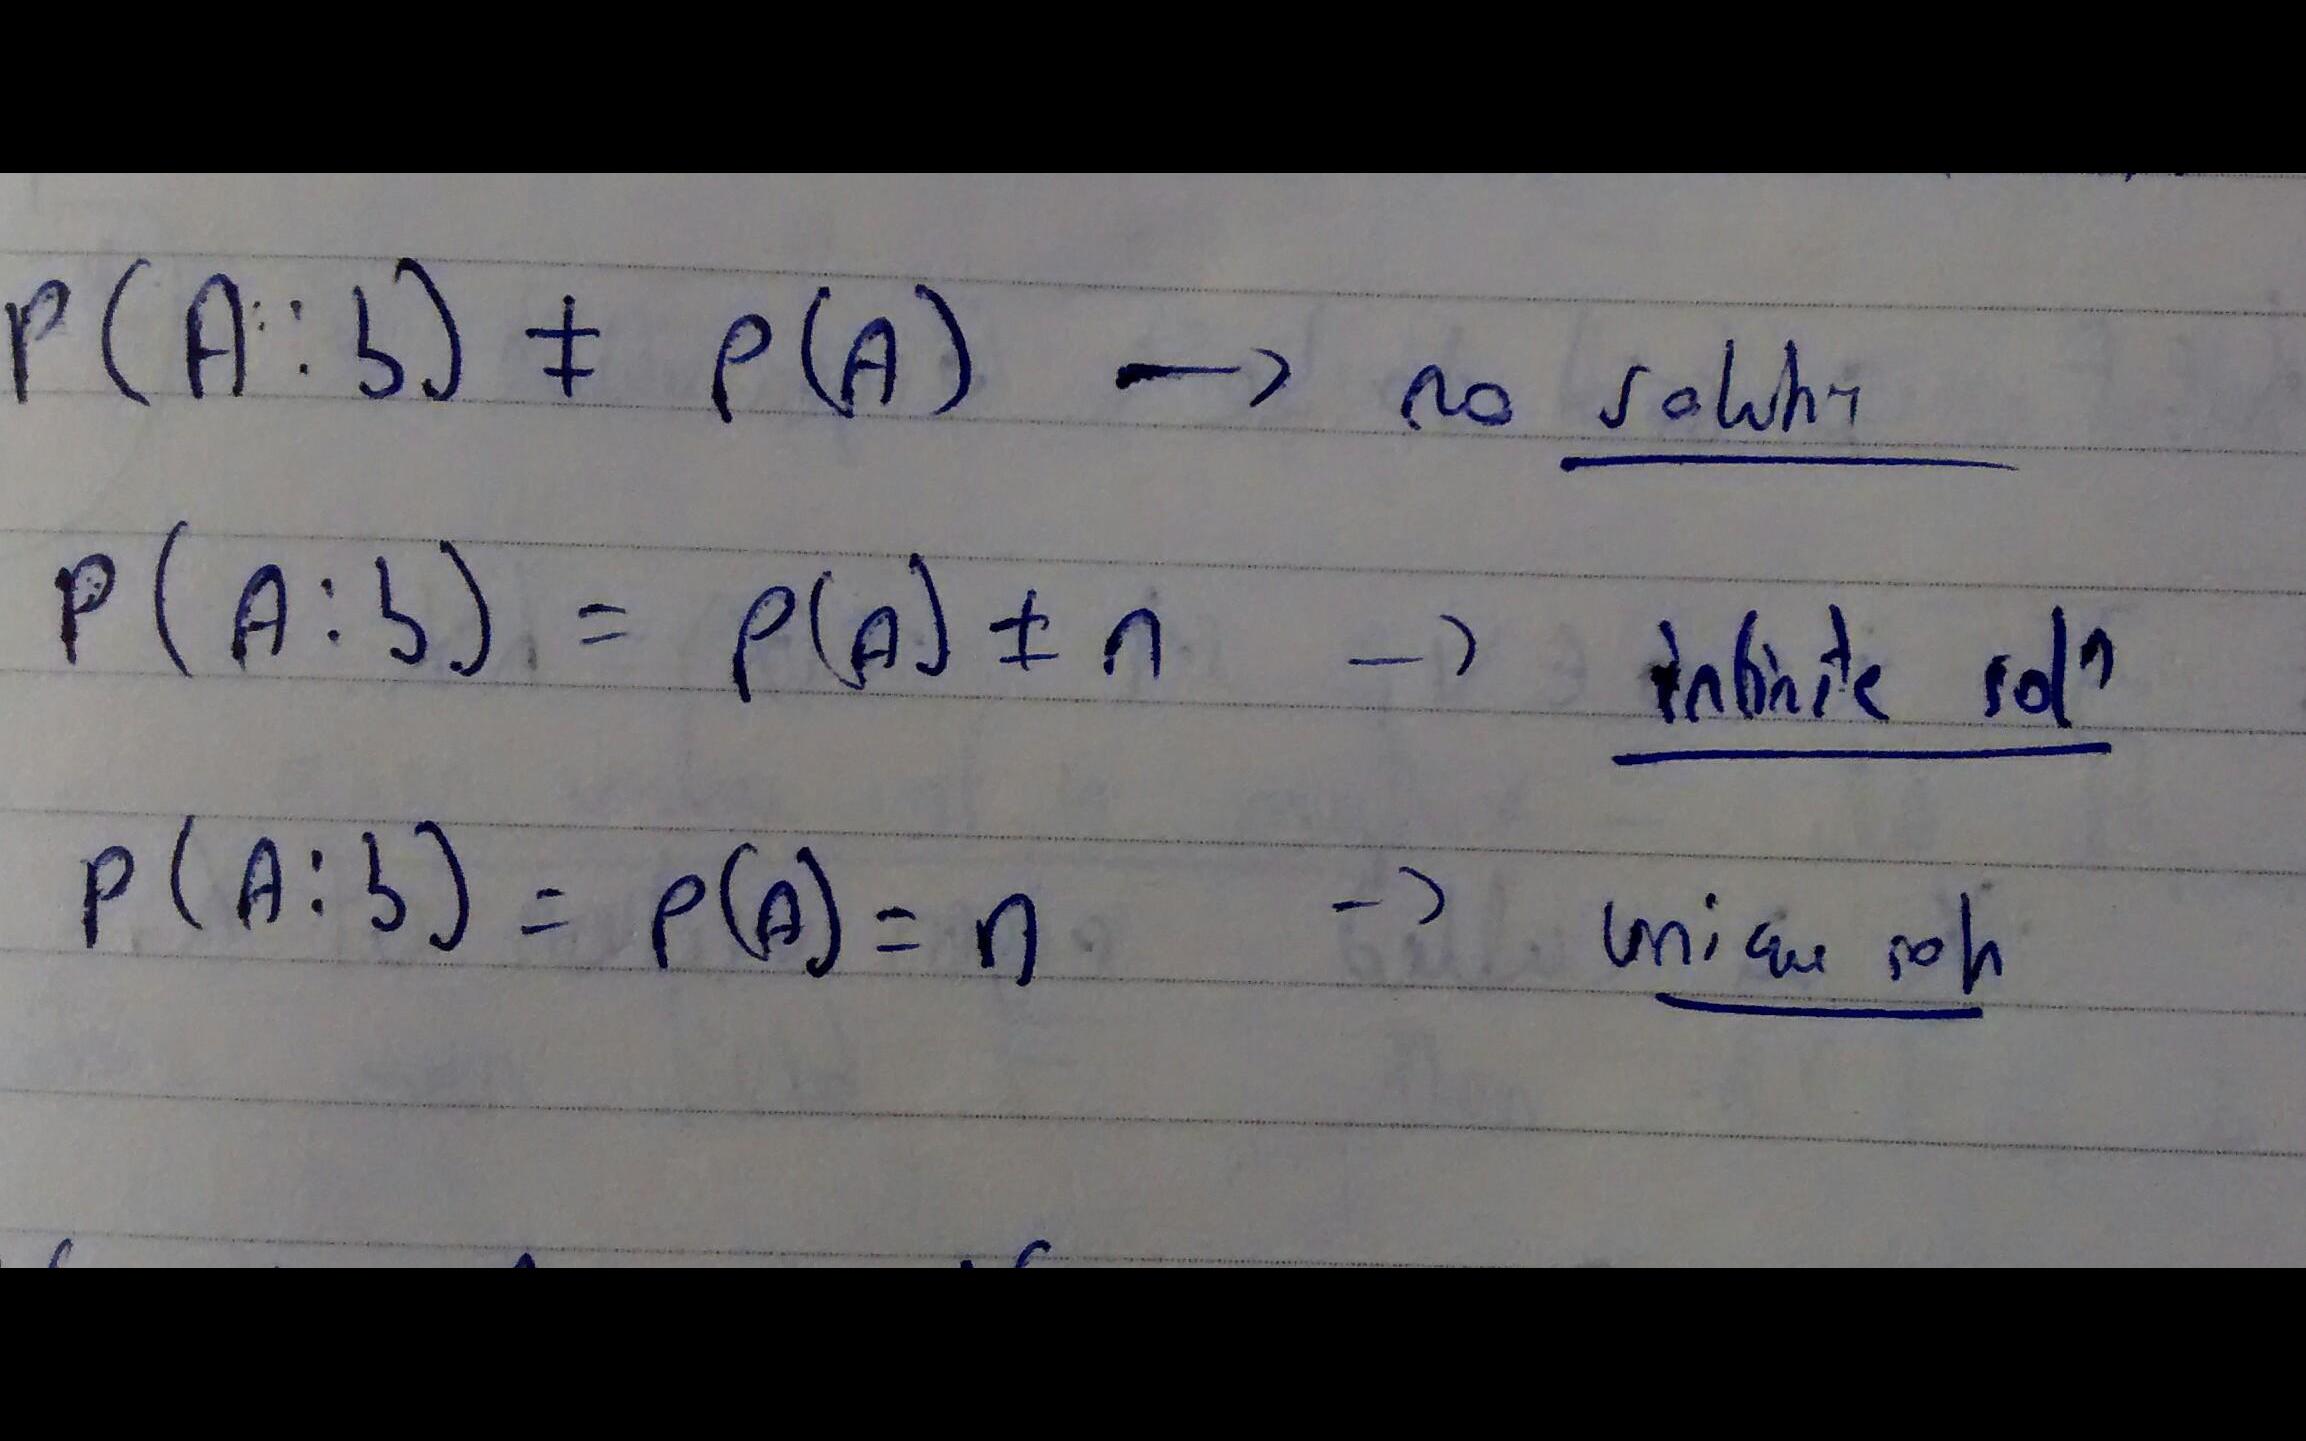 P(A:b) ≠ P(A) → no solutn
P(A:b) = P(A) ≠ n → infinite solⁿ
P(A:b) = P(A) = n → unique soln